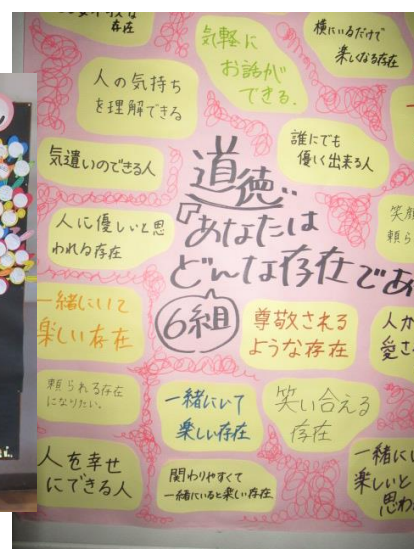 存在
気軽に
お話が
できる.
横にいるだけで
楽しくなる存在
人の気持ち
を理解できる
誰にでも
優しく出来る人
気遣いのできる人
道徳
『あなたは
どんな存在であ
6組
笑顔
頼ら
人に優しいと思
われる存在
一緒にいて
楽しい存在
尊敬される
ような存在
人か
愛さ
頼られる存在
になりたい。
一緒にいて
楽しい存在
笑い合える
存在
人を幸せ
にできる人
関わりやすくて
一緒にいると楽しい存在
一緒にい
楽しいと
思わ